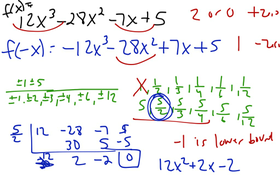 f(x)=
12x³ - 28x² - 7x + 5 2 or 0 +zero
f(-x) = -12x³ - 28x² + 7x + 5 1 -zero
±1 ±5
±1, ±2, ±3, ±4, ±6, ±12
X, 1/2, 1/3, 1/4, 1/6, 1/12
5, 5/2, 5/3, 5/4, 5/6, 5/12
5/2 12 -28 -7 5
30 5 -5
12 2 -2 0
-1 is lower bound
12x² + 2x - 2